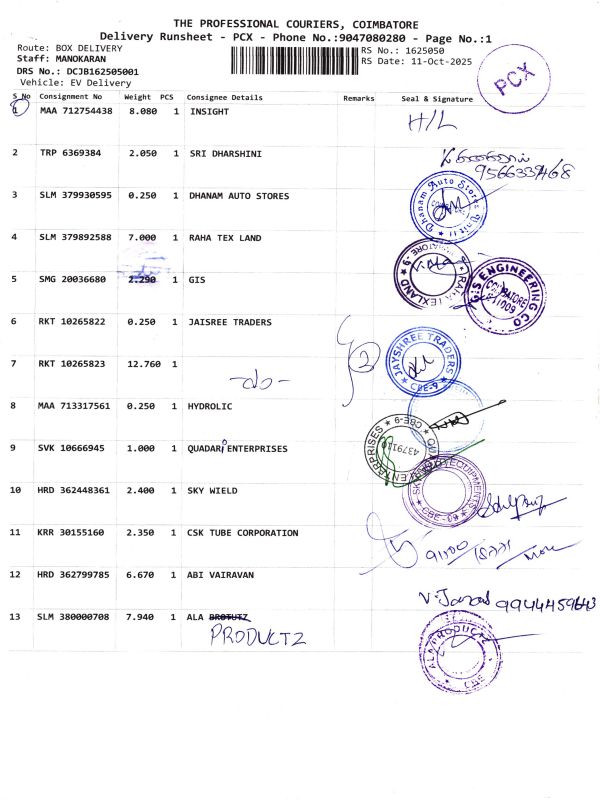 THE PROFESSIONAL COURIERS, COIMBATORE
Delivery Runsheet - PCX - Phone No.:9047080280 - Page No.:1
Route: BOX DELIVERY
RS No.: 1625050
Staff: MANOKARAN
RS Date: 11-Oct-2025
DRS No.: DCJB162505001
Vehicle: EV Delivery
PCX
S No Consignment No Weight PCS Consignee Details Remarks Seal & Signature
1 MAA 712754438 8.080 1 INSIGHT H/L
2 TRP 6369384 2.050 1 SRI DHARSHINI
3 SLM 379930595 0.250 1 DHANAM AUTO STORES
Dhanam Auto Stores
4 SLM 379892588 7.000 1 RAHA TEX LAND
5 SMG 20036680 2.290 1 GIS
G.I.S ENGINEERING CO
COIMBATORE
6 RKT 10265822 0.250 1 JAISREE TRADERS
2
JAYSHREE TRADERS
★ CBE-9 ★
7 RKT 10265823 12.760 1
-do-
8 MAA 713317561 0.250 1 HYDROLIC
9 SVK 10666945 1.000 1 QUADARI ENTERPRISES
10 HRD 362448361 2.400 1 SKY WIELD
11 KRR 30155160 2.350 1 CSK TUBE CORPORATION
12 HRD 362799785 6.670 1 ABI VAIRAVAN
13 SLM 380000708 7.940 1 ALA BROTUTZ
PRODUCTZ
ALA PRODUCTZ